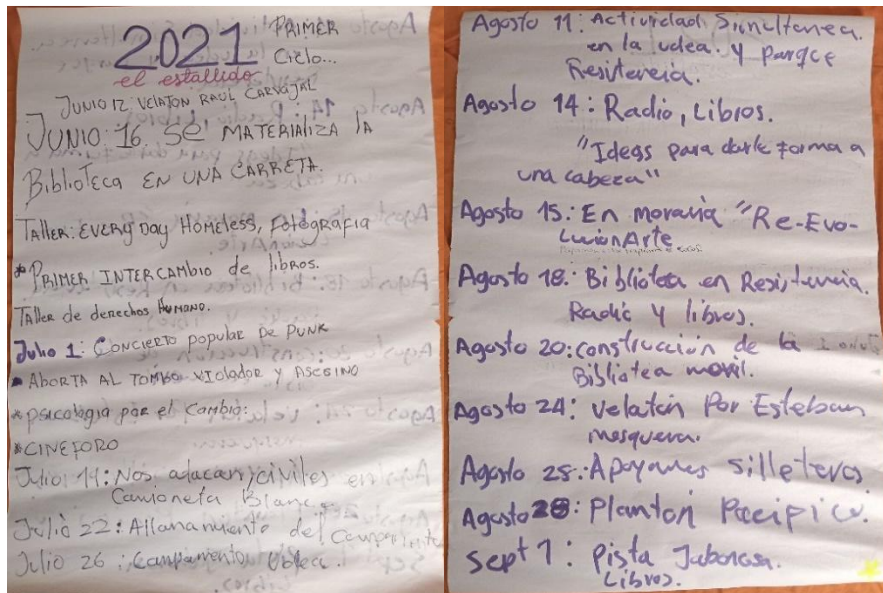 2021 PRIMER
Ciclo...
el estallido
JUNIO 12: VELATON RAUL CARVAJAL
JUNIO 16 SE MATERIALIZA LA
BiblioTeca EN UNA CARRETA.
TALLER: EVERY DAY HOMELESS, FOTOGRAFIA
*PRIMER INTERCAMBIO de libros.
TALLER de derechos HUMANO.
Julio 1: CONCIERTO popular DE PUNK
* ABORTA AL TOMBO VIOLADOR Y ASESINO
* psicologia por el Cambio:
*CINEFORO
Julio 14: Nos atacan civiles en
Camioneta Blanca
Julio 22: Allanamiento del Campamento
Julio 26: Campamento Udea.
Agosto 11: Actividad Simultanea.
en la udea. y Parque
Resistencia.
Agosto 14: Radio, Libros.
"Ideas para darle forma a
una cabeza"
Agosto 15: En moravia "Re-Evo-
LucionArte
Agosto 18: Biblioteca en Resistencia.
Radio y libros.
Agosto 20: construcción de la
Biblioteca movil.
Agosto 24: velatón Por Esteban
mosquera.
Agosto 28: Apoyamos silleteros
Agosto 28: Planton Pacifico.
Sept 1: Pista Jabonosa.
Libros.